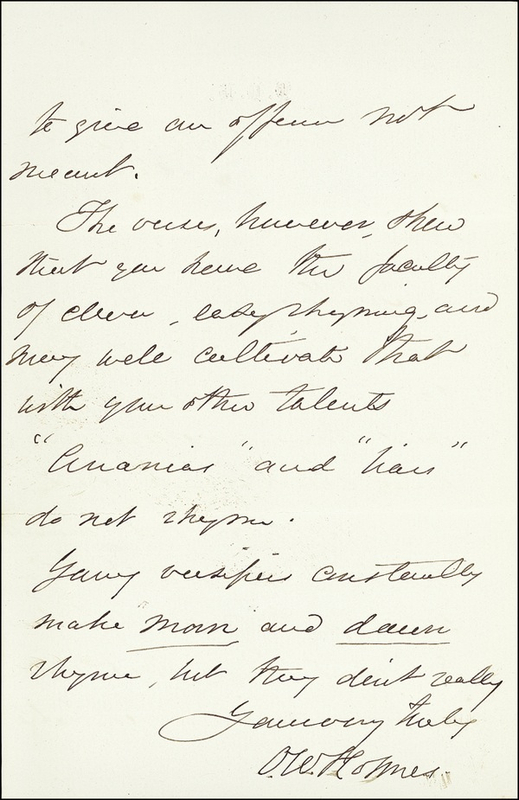 to give an offence not
meant.
The verses, however, show
that you have the faculty
of clever, easy rhyming, and
may well cultivate that
with your other talents
"Ananias" and "liars"
do not rhyme.
Young versifiers constantly
make morn and dawn
rhyme, but they don't really
Yours very truly
O.W. Holmes.